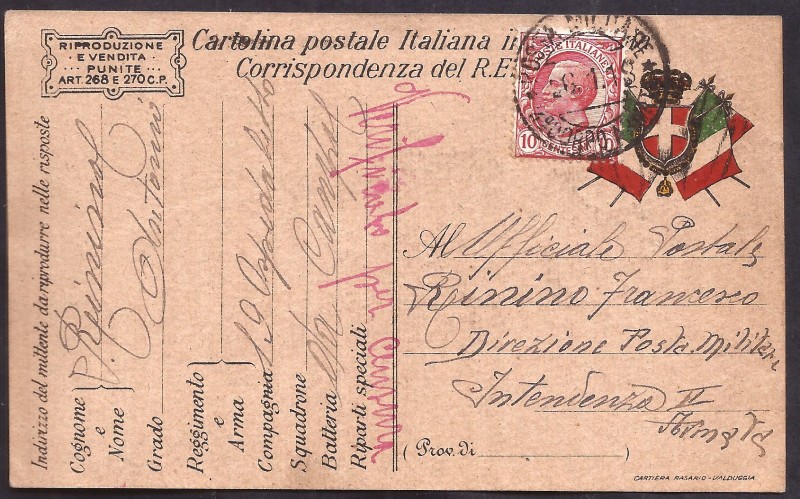 RIPRODUZIONE
E VENDITA
PUNITE
ART. 268 E 270 C.P.
Cartolina postale Italiana in
Corrispondenza del R. E
POSTE ITALIANE
10 CENTESIMI 10
POSTA MILITARE
Al Ufficiale Postale
Rinino Francesco
Direzione Posta Militare
Intendenza II
Armata
(Prov. di )
CARTIERA ROSARIO - VALDUGGIA
Indirizzo del mittente da riprodurre nelle risposte
Cognome
e
Nome
Antonio
Grado
Reggimento
e
Arma
Compagnia 19 Ospedaletto
Squadrone
Batteria da Campo
Riparti speciali
Verificato per censura